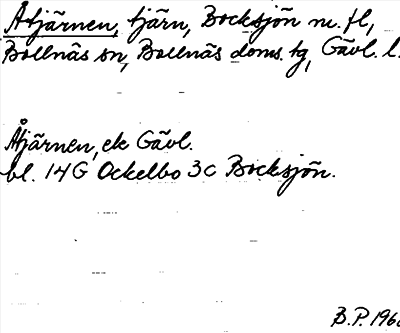 Åtjärnen, tjärn, Bocksjön m. fl,
Bollnäs sn, Bollnäs doms. tg, Gävl. l.
Åtjärnen, ek Gävl.
bl. 14G Ockelbo 3c Bocksjön.
B.P. 196